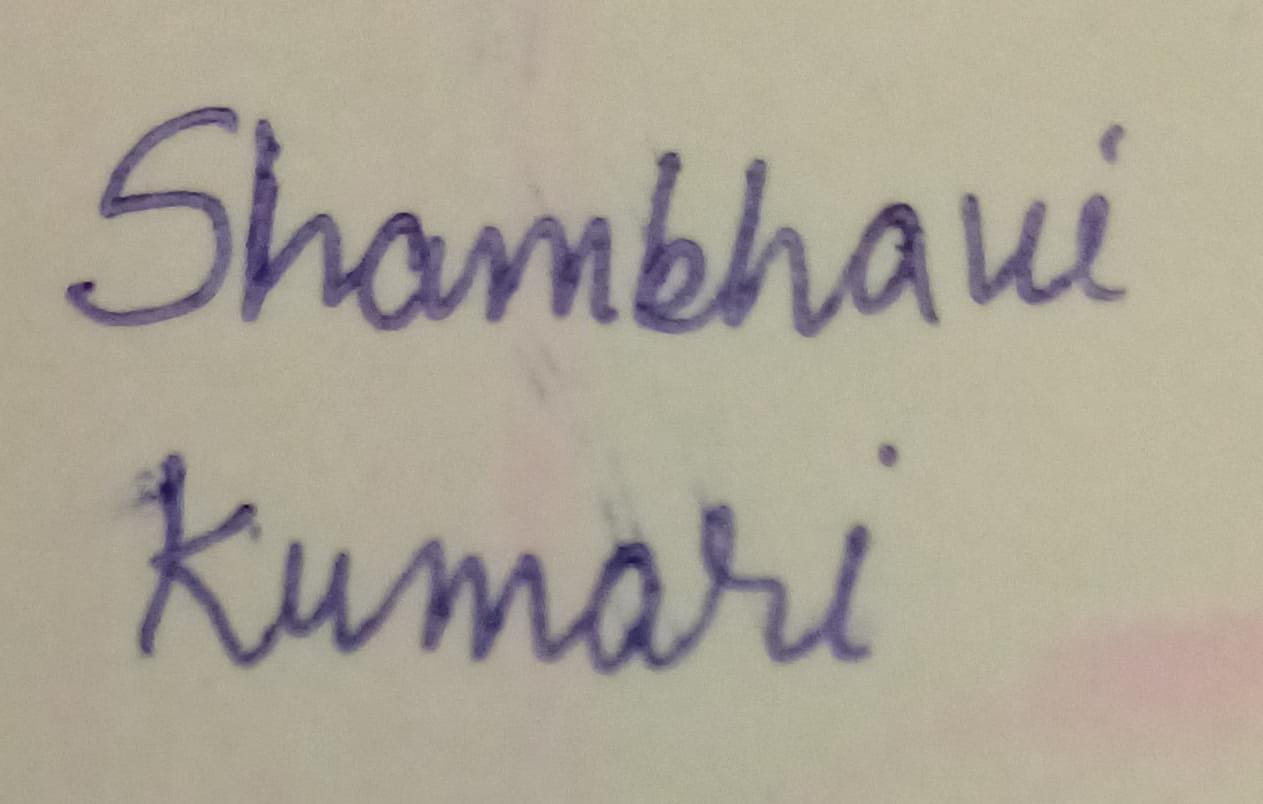 Shambhavi
Kumari